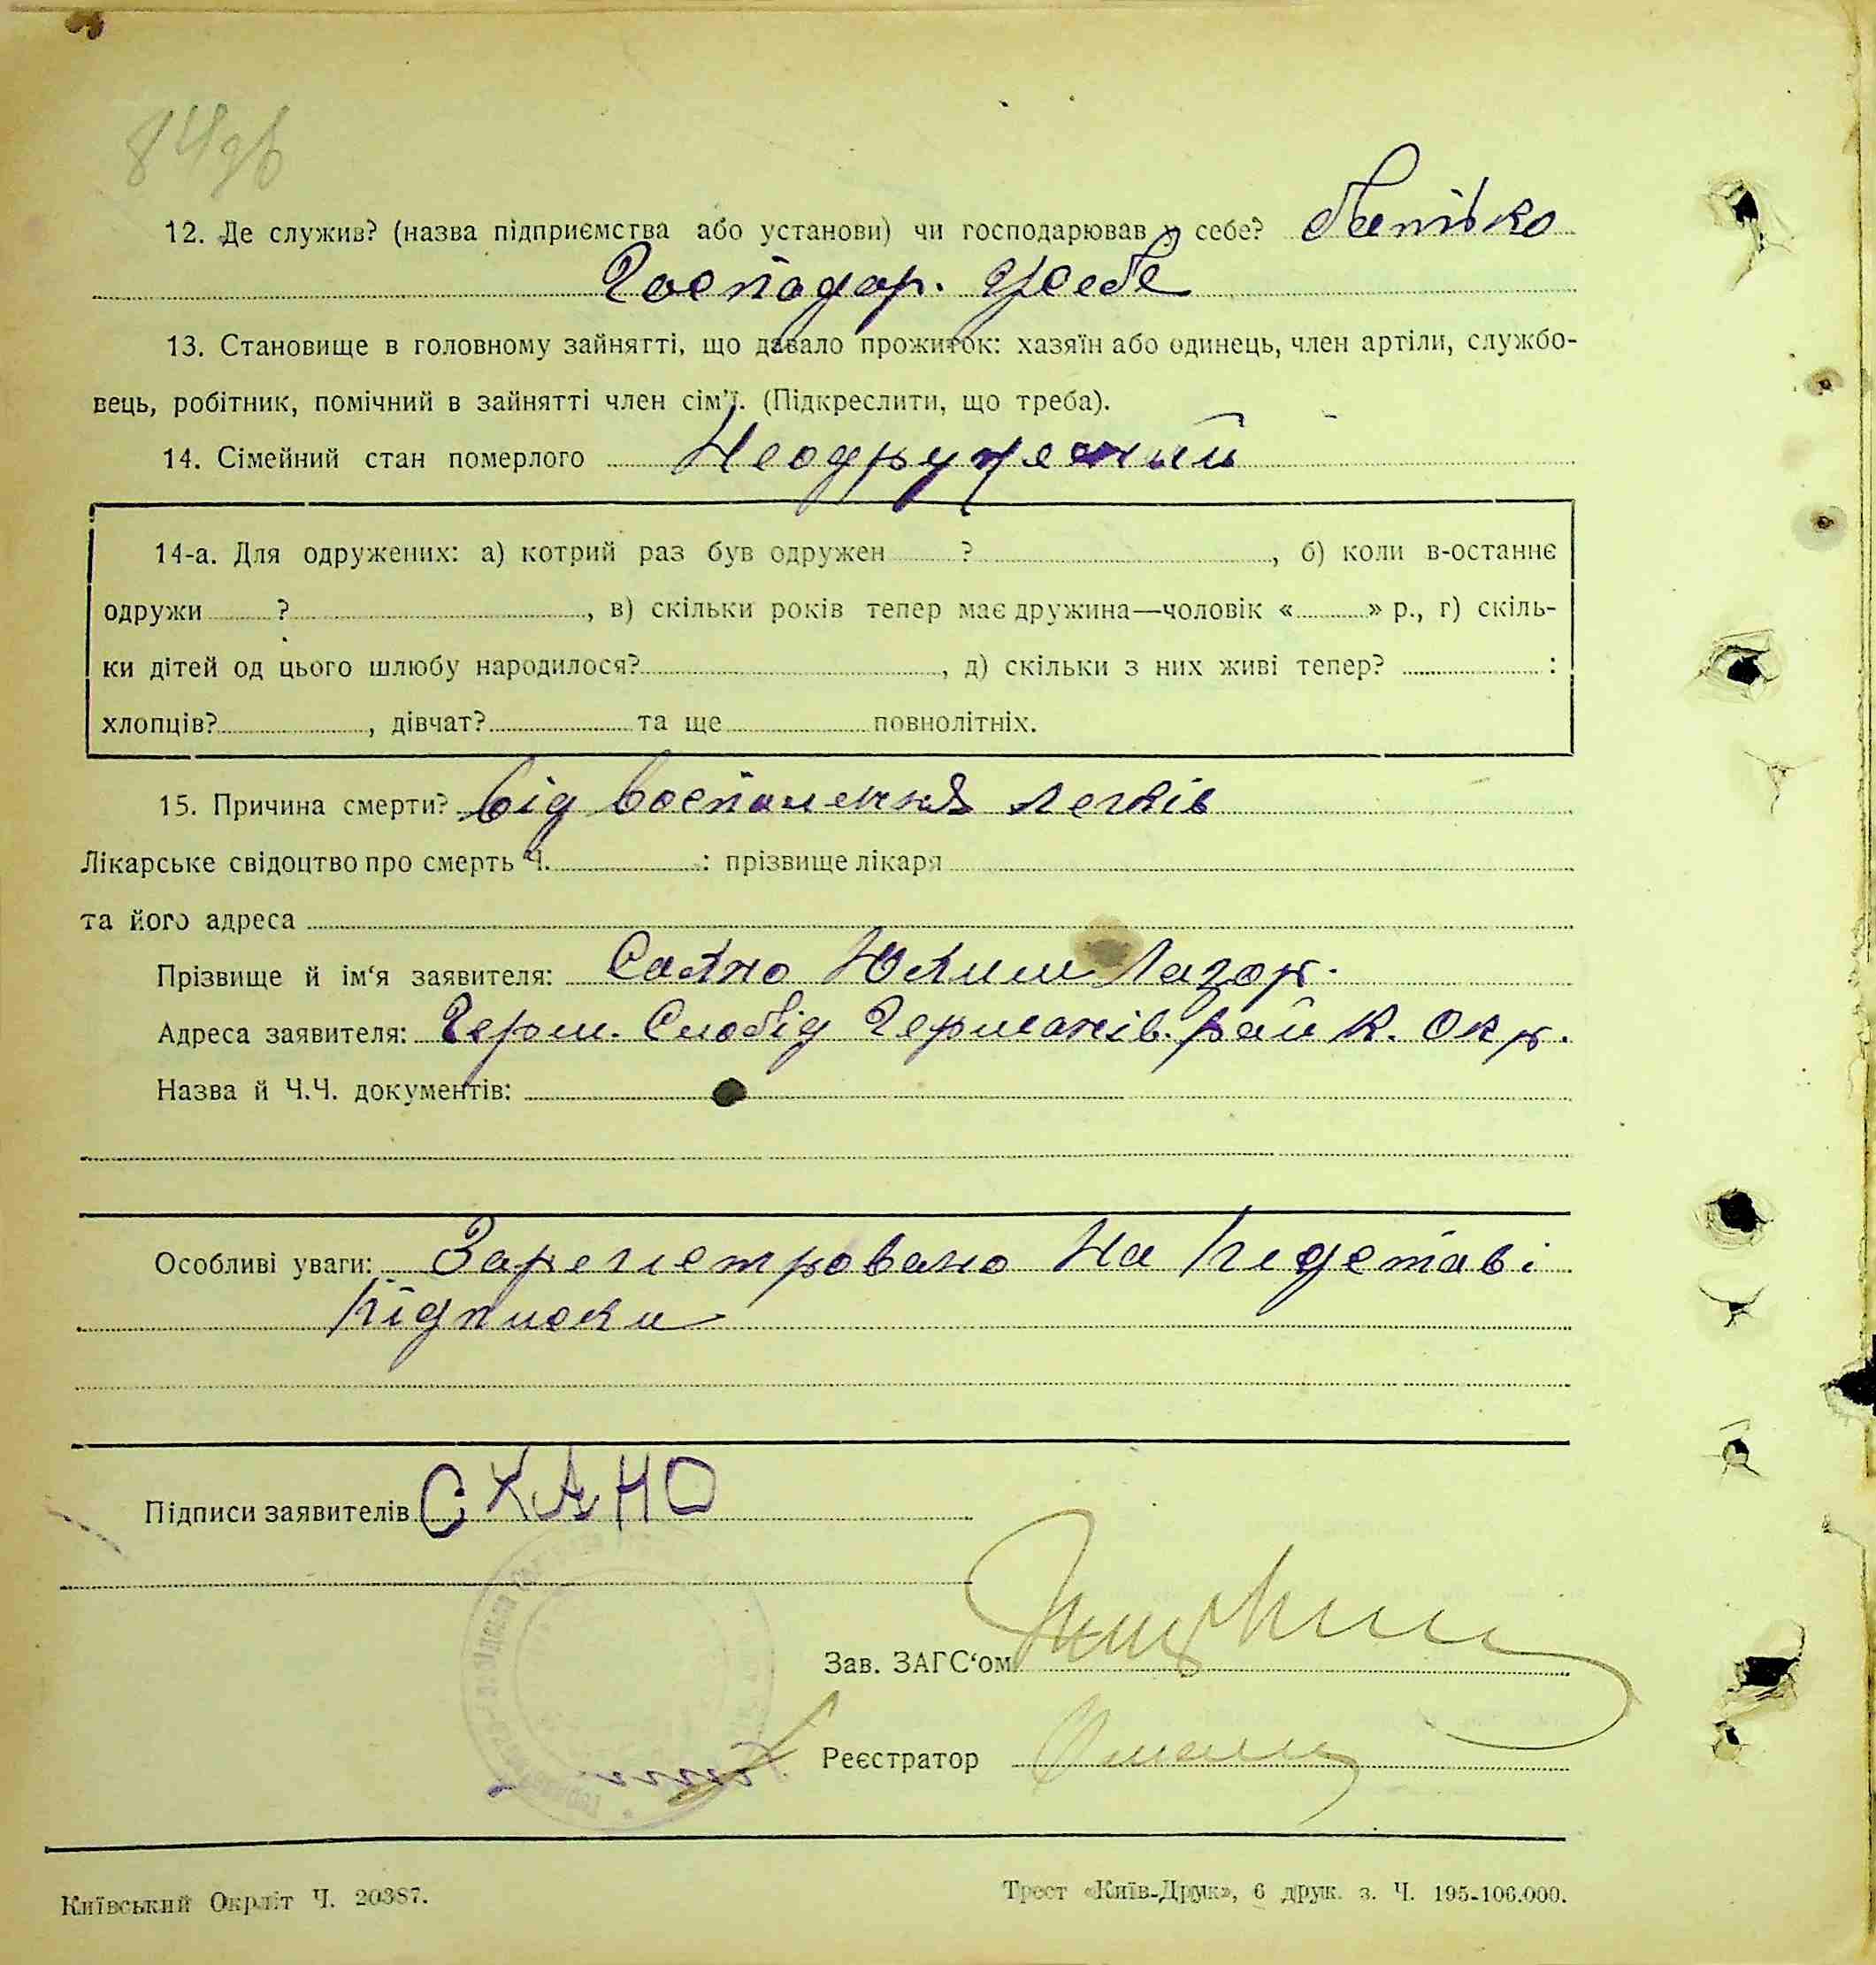 84зв
12. Де служив? (назва підприємства або установи) чи господарював у себе? батько
Господар. усебе
13. Становище в головному зайнятті, що давало прожиток: хазяїн або одинець, член артіли, службо-
вець, робітник, помічний в зайнятті член сім'ї. (Підкреслити, що треба).
14. Сімейний стан померлого Неодружений
14-а. Для одружених: а) котрий раз був одружен ?, б) коли в-останнє
одружи ?, в) скільки років тепер має дружина—чоловік « » р., г) скіль-
ки дітей од цього шлюбу народилося?, д) скільки з них живі тепер? :
хлопців?, дівчат? та ще повнолітніх.
15. Причина смерти? від воспалення легків
Лікарське свідоцтво про смерть Ч. : прізвище лікаря
та його адреса
Прізвище й ім'я заявителя: Сахно Юхим Лазор.
Адреса заявителя: Герм. Слобід Германів. рай К. Окр.
Назва й Ч.Ч. документів:
Особливі уваги: Зарегистровано На Підставі
Підписки
Підписи заявителів СХАНО
Зав. ЗАГС'ом
Реєстратор
Київський Окрліт Ч. 20387.
Трест «Київ-Друк», 6 друк. з. Ч. 195-106.000.